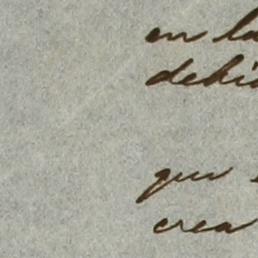 en la
debi
que
crea